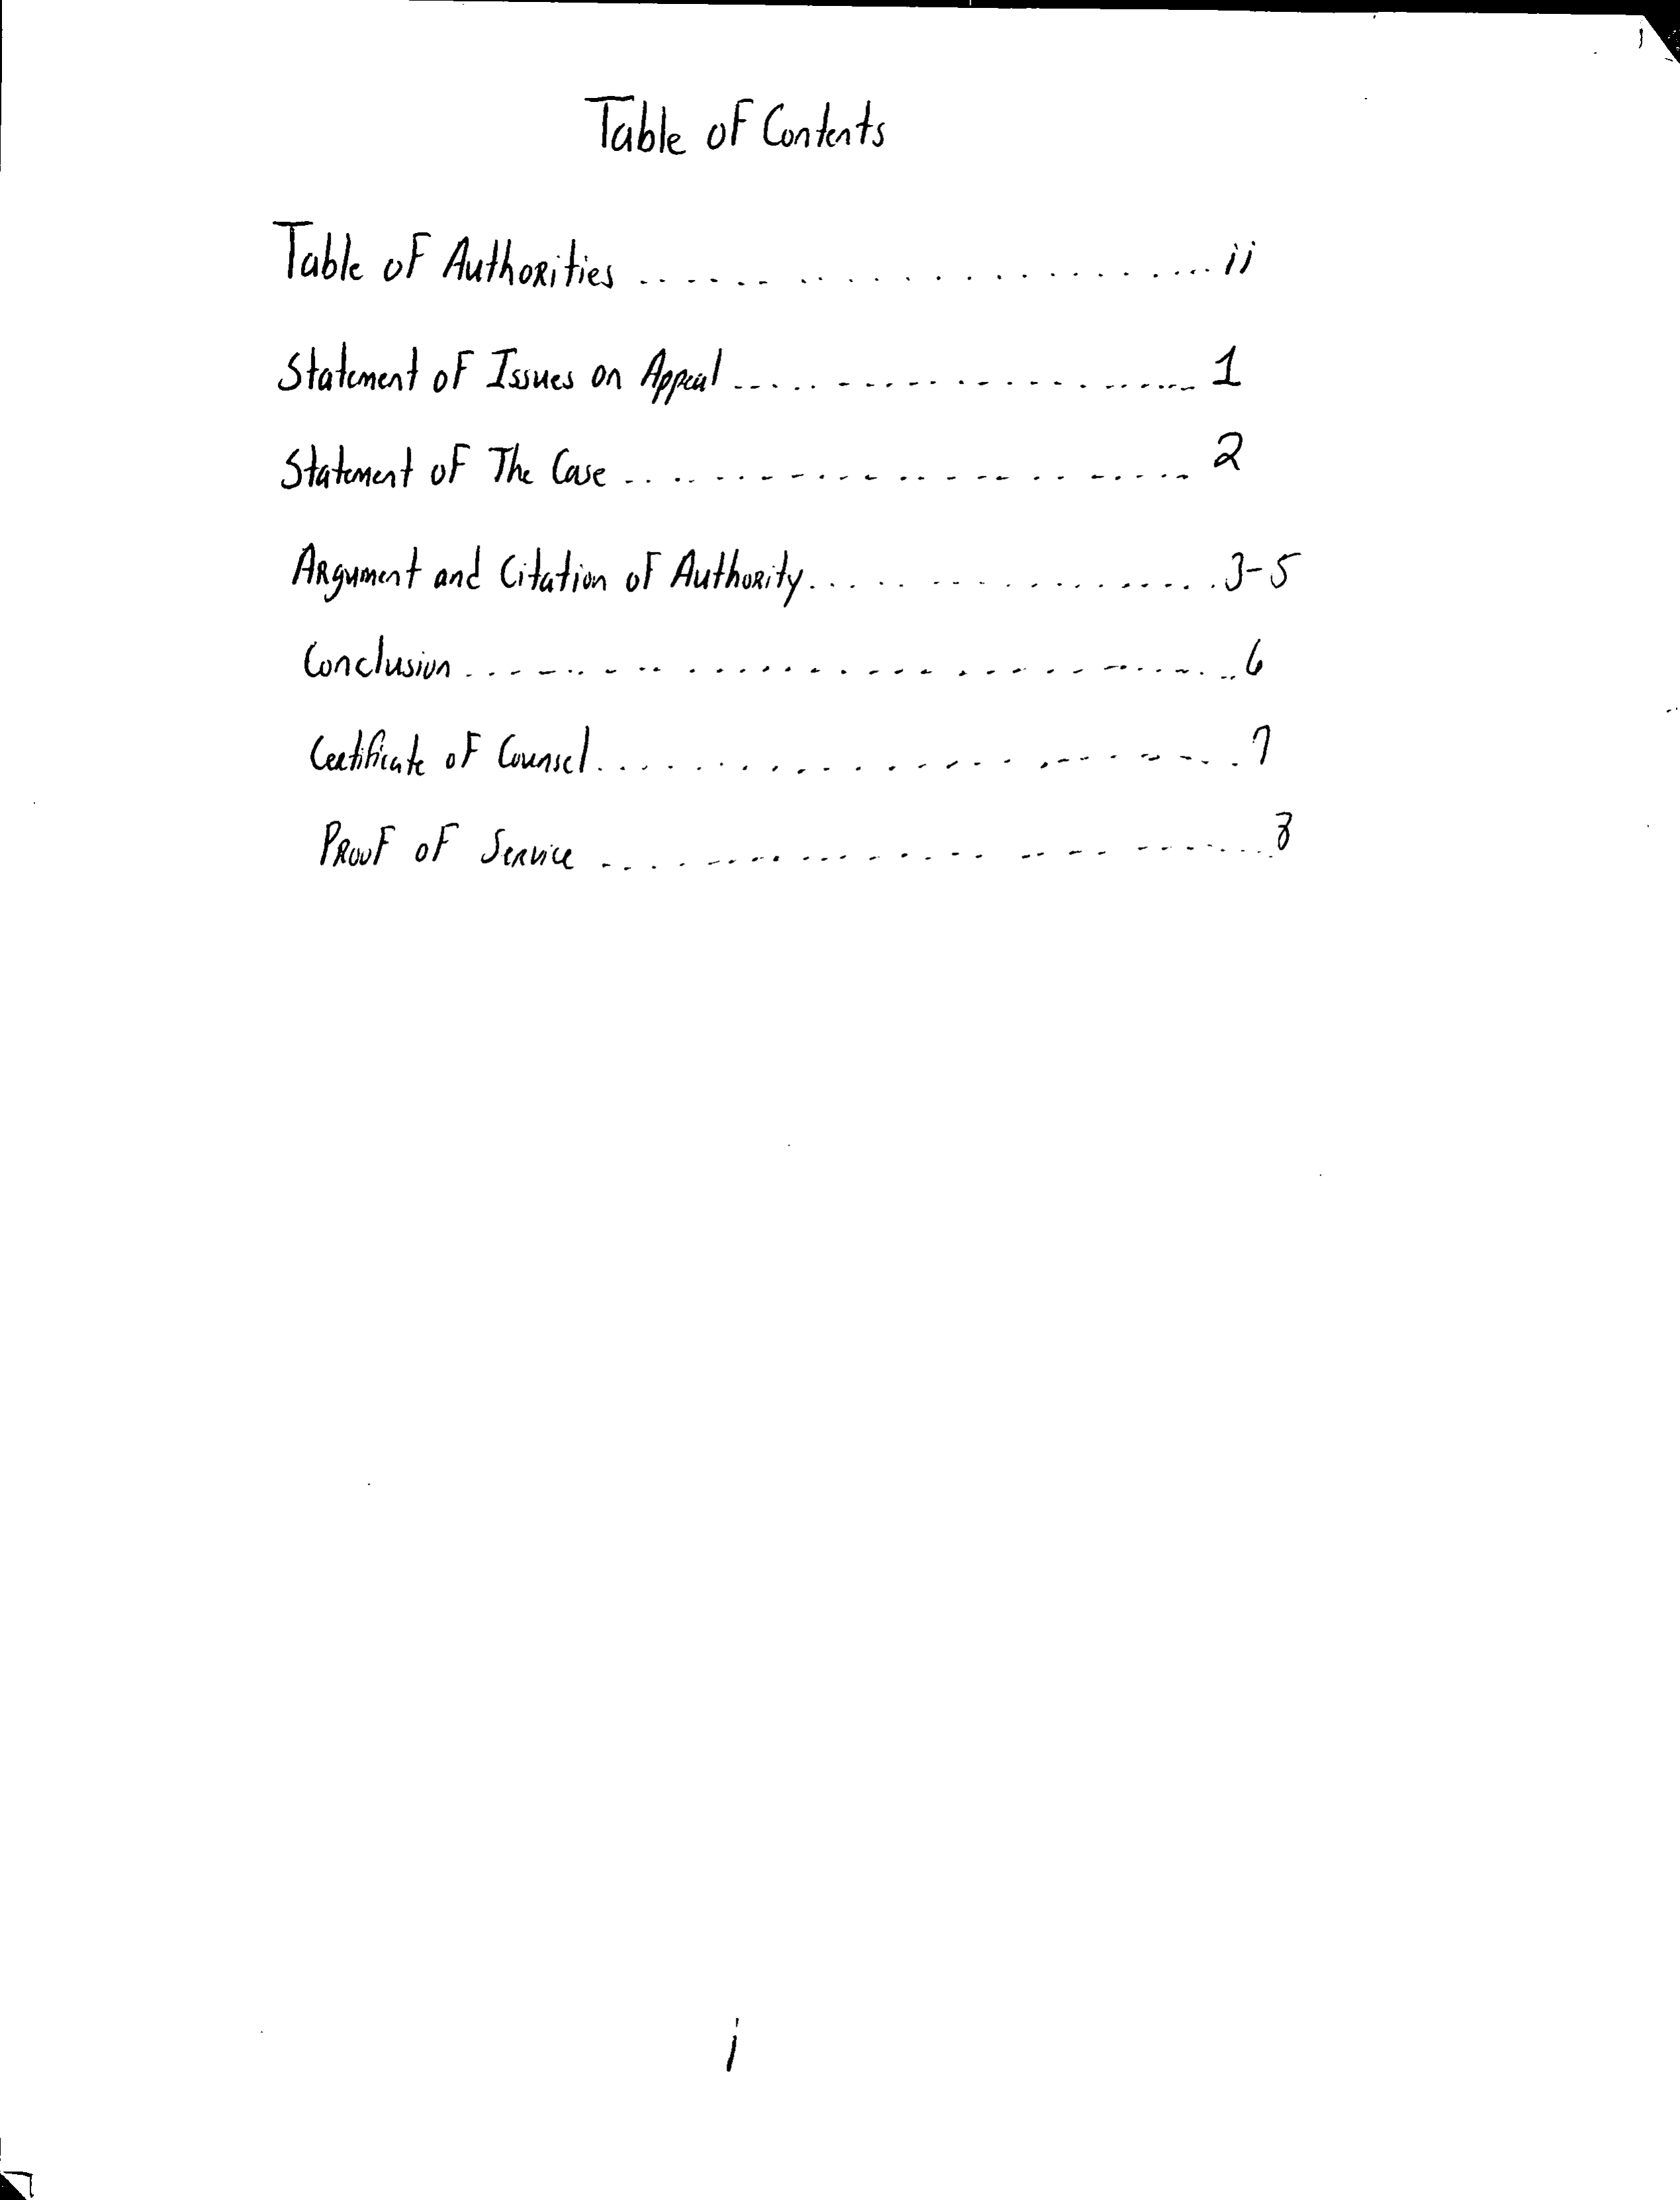 Table of Contents
Table of Authorities .................... ii
Statement of Issues on Appeal .................... 1
Statement of The Case .................... 2
Argument and Citation of Authority .................... 3-5
Conclusion .................... 6
Certificate of Counsel .................... 7
Proof of Service .................... 8
i